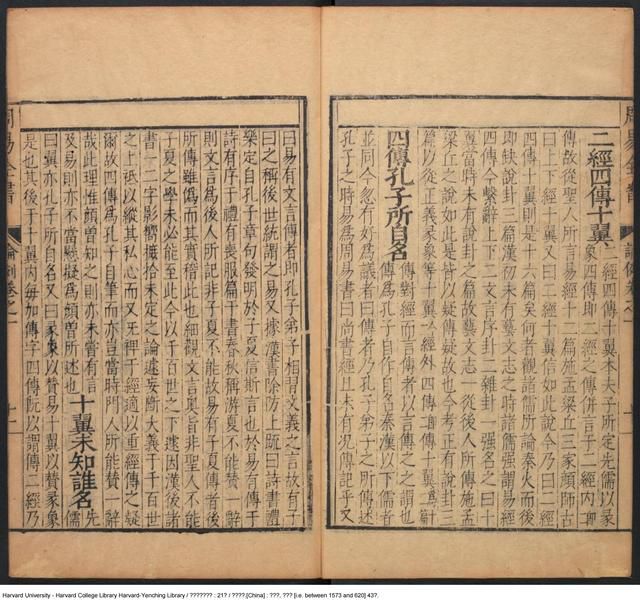 二經四傳十翼 二經四傳十翼本夫子所定先儒以彖
象四傳即二經之傳併言于二經內即
傳故從聖人所言易經十二篇施孟梁丘三家顏師古
曰上下經十翼又曰二經十翼信如此說今乃曰二經
四傳十翼則是十六篇矣何者觀諸儒所論秦火而後
即缺說卦三篇漢初未有藝文志之時諸儒強謂易經
四傳今繫辭上下二文言序卦二雜卦一強名之曰十
翼當時未有說卦之篇故藝文志一從後人所傳施孟
梁丘之說如此是將以疑傳疑故也今考正有說卦三
篇以從正義彖象等十翼二經外四傳
四傳孔子所自名 傳對經而言傳者以言傳之之謂也
傳爲孔子自作自名秦漢以下儒者
並同今忽有好爲議者曰傳者乃孔子弟子之所傳述
孔子之時易爲周易書十翼尚未有况傳記乎又
曰易有文言傳者即孔子弟子相習文義之言故有子
曰之稱後世統謂之易又據漢書除防上既曰詩書禮
樂定自孔子章句發明於子夏信斯言也於易有傳于
詩有序于禮有喪服篇于書春秋稱游夏不能贊一辭
則文言爲後人所記非子夏不能故易有子夏傳者後
所傳雖僞而其實稽此也細觀文言奧旨非聖人不能
子夏之學未必能至此今以千百世之下遽因漢後諸
書一二字影響摭拾未定之論遽妄斷大義于千百世
之上祇以縱其私心而又旡稗于經適以重經傳之疑
爾故四傳爲孔子自筆而亦豈當時門人所能贊一辭
哉此理惟顏曾知之則亦未嘗有言
及易則亦不當懸擬爲顏曾所述也 十翼未知誰名 先儒
曰翼亦孔子所自名又曰彖象以贊易十翼以贊彖象
是也其後于十翼内每加傳字四傳既以謂傳二經乃
周易全書
論例卷之一